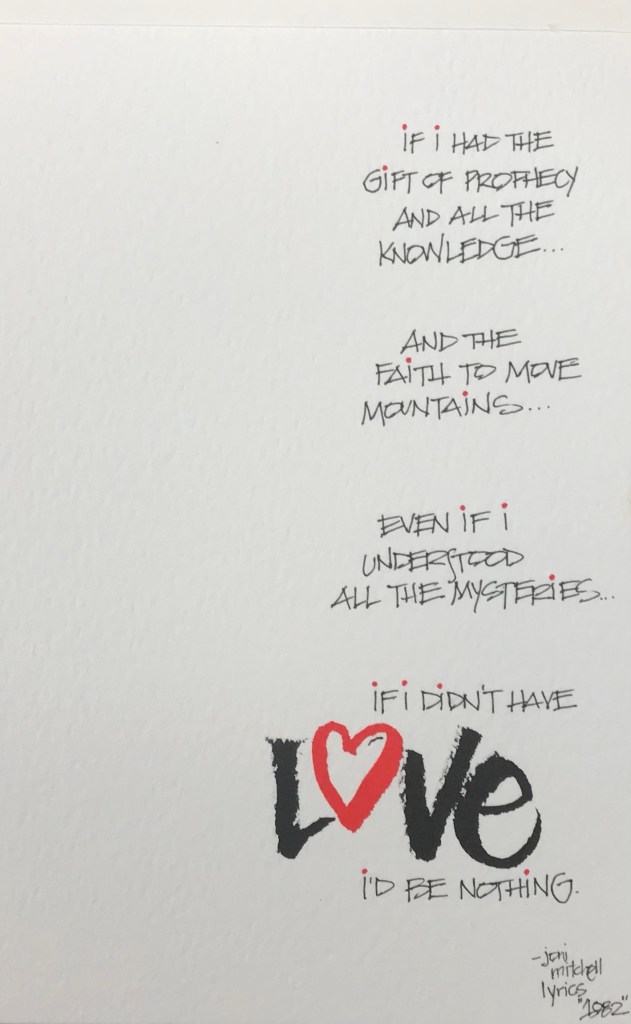 if i HAD THE
GiFT OF PROPHECY
AND ALL THE
KNOWLEDGE...
AND THE
FAiTH TO MOVE
MOUNTAiNS...
EVEN iF i
UNDERSTOOD
ALL THE MYSTERiES...
iF i DiDN'T HAVE
LOVe
i'D BE NOTHiNG.
-joni
mitchell
lyrics
"1982"